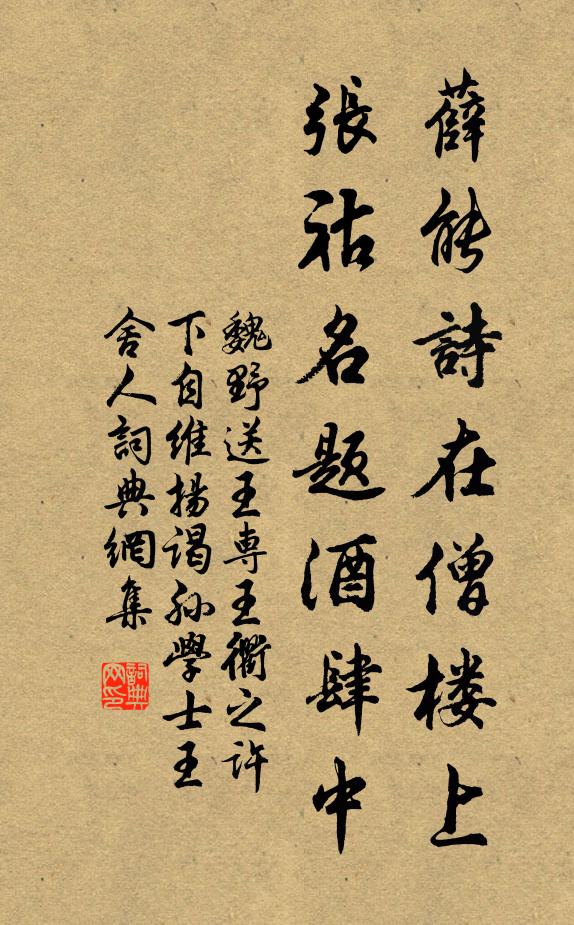 薛能詩在僧楼上
張祜名題酒肆中
魏野送王専王衢之許
下自維揚謁孙學士王
舍人詞典網集
詞典网印